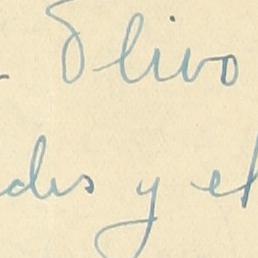 Olivo
des y el